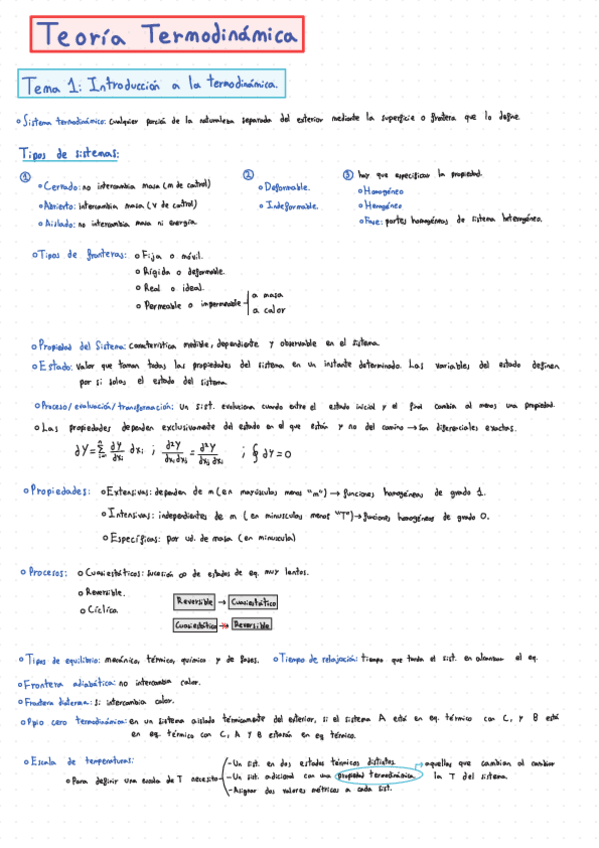 Teoría Termodinámica
Tema 1: Introducción a la termodinámica.
o Sistema termodinámico: cualquier porción de la naturaleza separada del exterior mediante la superficie o frontera que lo define.
Tipos de sistemas:
① o Cerrado: no intercambia masa (m de control)
o Abierto: intercambia masa (v de control)
o Aislado: no intercambia masa ni energía.
② o Deformable.
o Indeformable.
③ hay que especificar la propiedad.
o Homogéneo
o Heterogéneo
o Fase: partes homogéneas de sistema heterogéneo.
o Tipos de fronteras: o Fija o móvil.
o Rígida o deformable.
o Real o ideal.
o Permeable o impermeable
a masa
a calor
o Propiedad del Sistema: característica medible, dependiente y observable en el sistema.
o Estado: valor que toman todas las propiedades del sistema en un instante determinado. Las variables del estado definen
por si solas el estado del sistema
o Proceso/evaluación/transformación: Un sist. evoluciona cuando entre el estado inicial y el final cambia al menos una propiedad.
o Las propiedades dependen exclusivamente del estado en el que están y no del camino → Son diferenciales exactas.
dY = Σ dY/dxi dxi ; d²Y/dxi dxj = d²Y/dxj dxi ; ∮ dY = 0
o Propiedades: o Extensivas: dependen de m (en mayúsculas menos "m") → funciones homogéneas de grado 1.
o Intensivas: independientes de m (en minusculas menos "T") → funciones homogéneas de grado 0.
o Específicas: por ud. de masa (en minuscula)
o Procesos: o Cuasiestáticos: sucesión ∞ de estados de eq. muy lentos.
o Reversible.
o Cíclico.
Reversible → Cuasiestático
Cuasiestático → Reversible
o Tipos de equilibrio: mecánico, térmico, químico y de fases. o Tiempo de relajación: tiempo que tarda el sist. en alcanzar el eq.
o Frontera adiabática: no intercambia calor.
o Frontera diaterma: si intercambia calor.
o Ppio cero termodinámica: en un sistema aislado térmicamente del exterior, si el sistema A está en eq. térmico con C, y B está
en eq. térmico con C, A y B estarán en eq térmico.
o Escala de temperaturas:
o Para definir una escala de T necesito
- Un sist. en dos estados térmicos distintos.
- Un sist. adicional con una propiedad termodinámica.
- Asignar dos valores métricos a cada sist.
aquellas que cambian al cambiar
la T del sistema.